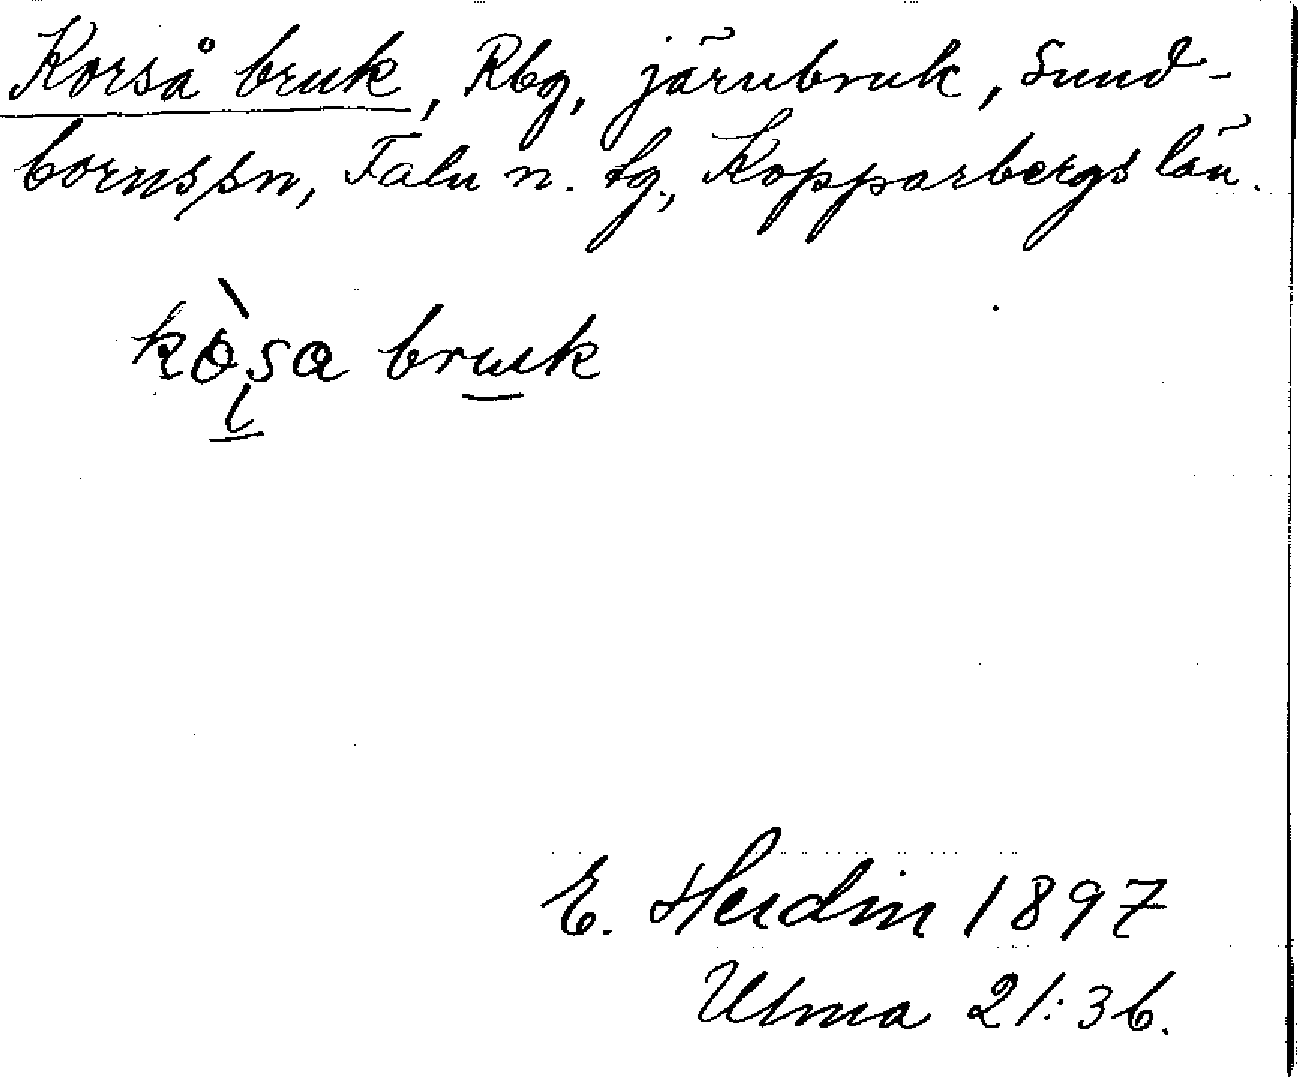 Korså bruk, Rbg, järnbruk, Sund-
borns sn, Falu n. tg., Kopparbergs län.
kòsa bruk
E. Herdin 1897
Ulma 21:36.